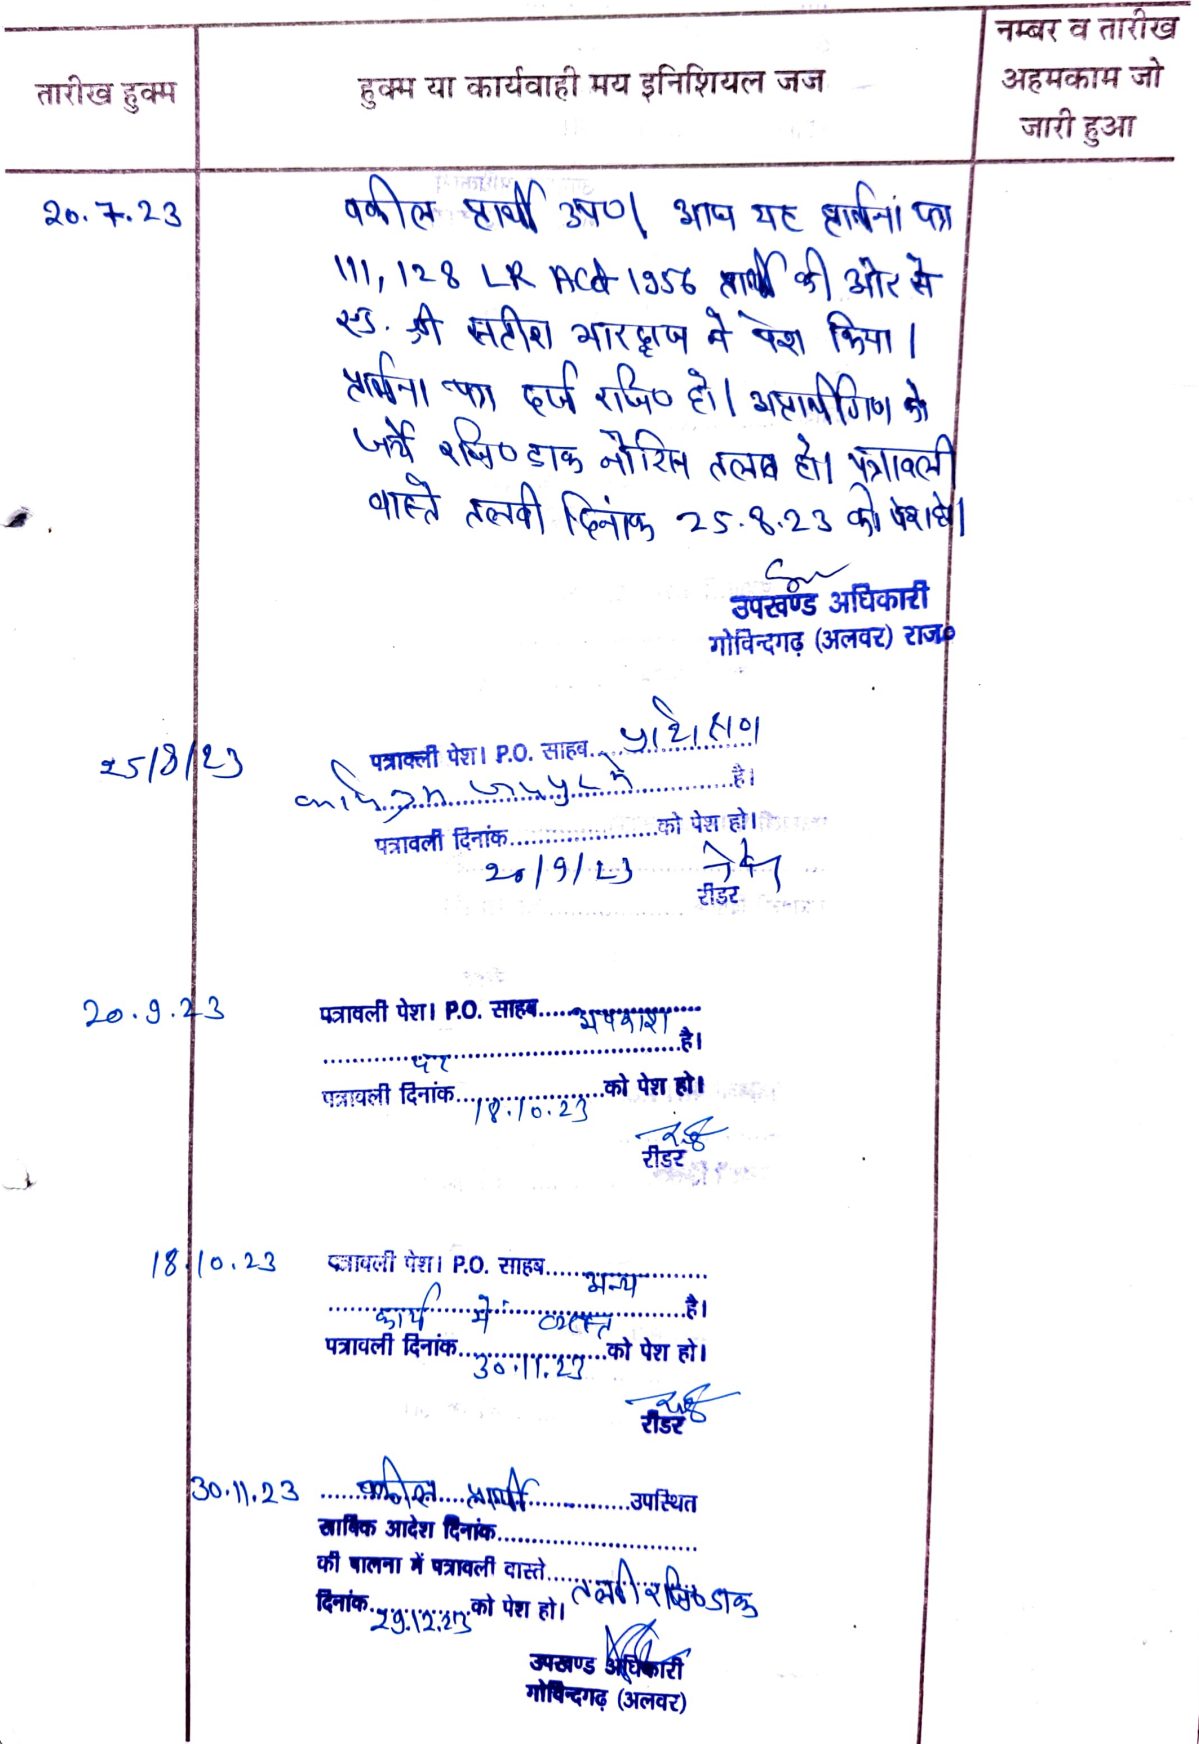 तारीख हुक्म
हुक्म या कार्यवाही मय इनिशियल जज
नम्बर व तारीख
अहमकाम जो
जारी हुआ
20.7.23
वकील प्रार्थी उप०। आज यह प्रार्थना पत्र
111, 128 LR Act 1956 प्रार्थी की ओर से
एड. श्री सतीश भारद्वाज ने पेश किया।
प्रार्थना पत्र दर्ज रजि० हो। अप्रार्थीगण को
जर्ये रजि० डाक नोटिस तलब हो। पत्रावली
वास्ते तलबी दिनांक 25.8.23 को पेश हो।
उपखण्ड अधिकारी
गोविन्दगढ़ (अलवर) राज०
25/8/23
पत्रावली पेश। P.O. साहब......
है।
पत्रावली दिनांक......................को पेश हो।
20/9/23
रीडर
20.9.23
पत्रावली पेश। P.O. साहब......अवकाश
पर......है।
पत्रावली दिनांक......................को पेश हो।
18.10.23
रीडर
18.10.23
पत्रावली पेश। P.O. साहब......अन्य
कार्य में व्यस्त है।
पत्रावली दिनांक......................को पेश हो।
30.11.23
रीडर
30.11.23
......वकील प्रार्थी......उपस्थित
साबिक आदेश दिनांक..............................
की पालना में पत्रावली वास्ते......तलबी रजि० डाक
दिनांक 29.12.23 को पेश हो।
उपखण्ड अधिकारी
गोविन्दगढ़ (अलवर)